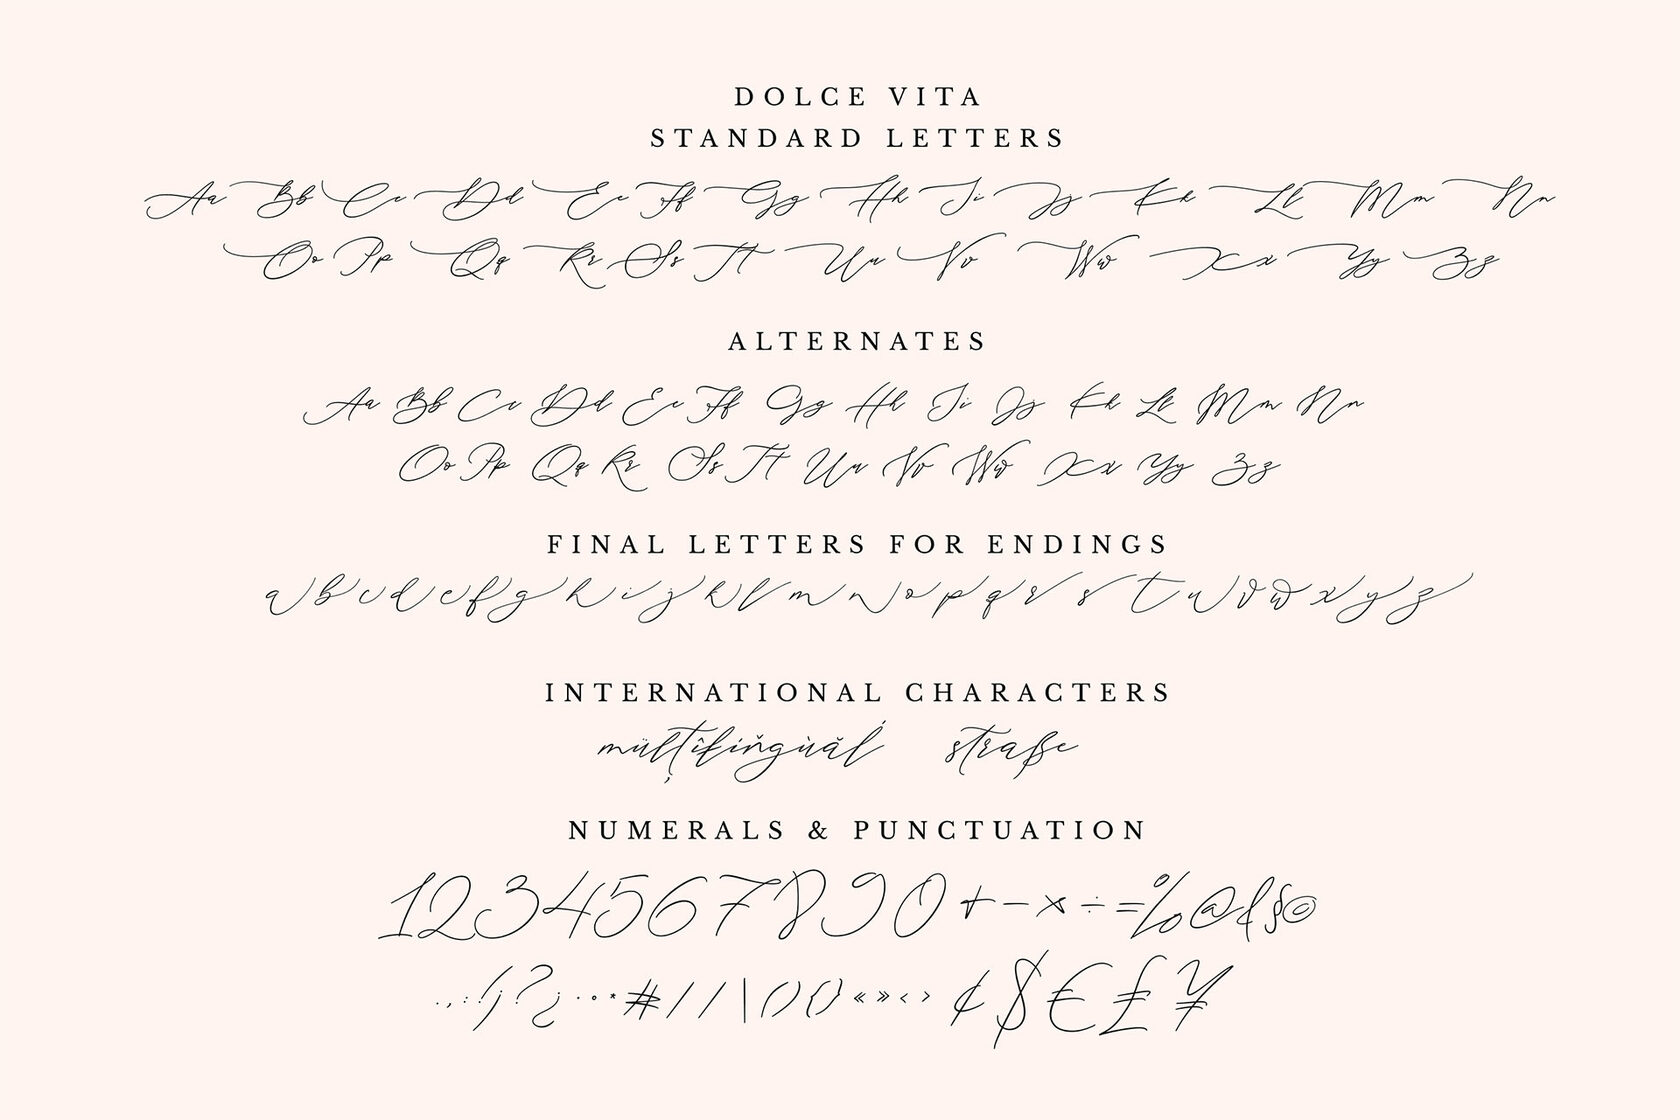 DOLCE VITA
STANDARD LETTERS
Aa Bb Cc Dd Ee Ff Gg Hh Ii Jj Kk Ll Mm Nn
Oo Pp Qq Rr Ss Tt Uu Vv Ww Xx Yy Zz
ALTERNATES
Aa Bb Cc Dd Ee Ff Gg Hh Ii Jj Kk Ll Mm Nn
Oo Pp Qq Rr Ss Tt Uu Vv Ww Xx Yy Zz
FINAL LETTERS FOR ENDINGS
a b c d e f g h i j k l m n o p q r s t u v w x y z
INTERNATIONAL CHARACTERS
mülţîlíňgùăĺ straße
NUMERALS & PUNCTUATION
1234567890+−×÷=%@&§©
.,:;!¡?¿·•°*#//|\(){}«»‹›¢$€£¥